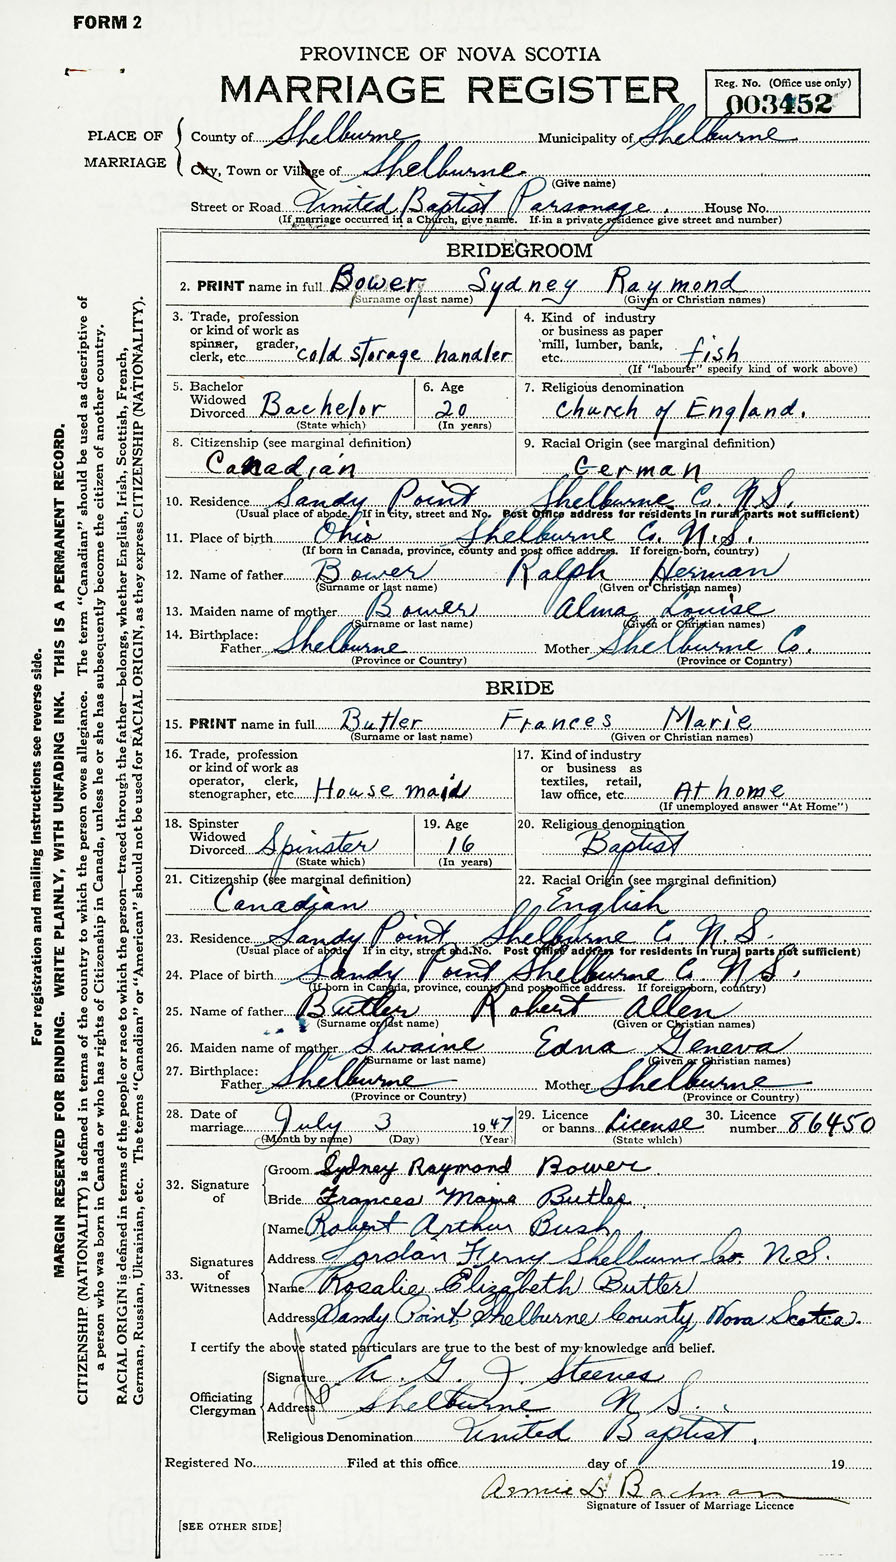 FORM 2
PROVINCE OF NOVA SCOTIA
MARRIAGE REGISTER
Reg. No. (Office use only)
003452
PLACE OF MARRIAGE
County of Shelburne Municipality of Shelburne
City, Town or Village of Shelburne
(Give name)
Street or Road United Baptist Parsonage. House No.
(If marriage occurred in a Church, give name. If in a private residence give street and number)
BRIDEGROOM
2. PRINT name in full Bower Sydney Raymond
(Surname or last name) (Given or Christian names)
3. Trade, profession or kind of work as spinner, grader, clerk, etc. cold storage handler
4. Kind of industry or business as paper mill, lumber, bank, etc. fish
(If "labourer" specify kind of work above)
5. Bachelor Widowed Divorced Bachelor
(State which)
6. Age 20
(In years)
7. Religious denomination Church of England.
8. Citizenship (see marginal definition) Canadian
9. Racial Origin (see marginal definition) German
10. Residence Sandy Point Shelburne Co. N.S.
(Usual place of abode. If in city, street and No. Post Office address for residents in rural parts not sufficient)
11. Place of birth Ohio Shelburne Co. N.S.
(If born in Canada, province, county and post office address. If foreign-born, country)
12. Name of father Bower Ralph Herman
(Surname or last name) (Given or Christian names)
13. Maiden name of mother Bower Alma Louise
(Surname or last name) (Given or Christian names)
14. Birthplace:
Father Shelburne Mother Shelburne Co.
(Province or Country) (Province or Country)
BRIDE
15. PRINT name in full Butler Frances Marie
(Surname or last name) (Given or Christian names)
16. Trade, profession or kind of work as operator, clerk, stenographer, etc. House maid
17. Kind of industry or business as textiles, retail, law office, etc. At home
(If unemployed answer "At Home")
18. Spinster Widowed Divorced Spinster
(State which)
19. Age 16
(In years)
20. Religious denomination Baptist
21. Citizenship (see marginal definition) Canadian
22. Racial Origin (see marginal definition) English
23. Residence Sandy Point Shelburne Co N.S.
(Usual place of abode. If in city, street and No. Post Office address for residents in rural parts not sufficient)
24. Place of birth Sandy Point Shelburne Co N.S.
(If born in Canada, province, county and post office address. If foreign-born, country)
25. Name of father Butler Robert Allen
(Surname or last name) (Given or Christian names)
26. Maiden name of mother Swaine Edna Geneva
(Surname or last name) (Given or Christian names)
27. Birthplace:
Father Shelburne Mother Shelburne
(Province or Country) (Province or Country)
28. Date of marriage July 3 1947
(Month by name) (Day) (Year)
29. Licence or banns License
(State which)
30. Licence number 86450
32. Signature of
Groom Sydney Raymond Bower
Bride Frances Marie Butler
33. Signatures of Witnesses
Name Robert Arthur Bush
Address Jordan Ferry Shelburne Co. N.S.
Name Rosalie Elizabeth Butler
Address Sandy Point, Shelburne County, Nova Scotia.
I certify the above stated particulars are true to the best of my knowledge and belief.
Officiating Clergyman
Signature A. G. J. Steeves
Address Shelburne N S.
Religious Denomination United Baptist.
Registered No. Filed at this office day of 19
Bachman
Signature of Issuer of Marriage Licence
[SEE OTHER SIDE]
For registration and mailing instructions see reverse side.
MARGIN RESERVED FOR BINDING. WRITE PLAINLY, WITH UNFADING INK. THIS IS A PERMANENT RECORD.
CITIZENSHIP (NATIONALITY) is defined in terms of the country to which the person owes allegiance. The term "Canadian" should be used as descriptive of
a person who was born in Canada or who has rights of Citizenship in Canada, unless he or she has subsequently become the citizen of another country.
RACIAL ORIGIN is defined in terms of the people or race to which the person—traced through the father—belongs, whether English, Irish, Scottish, French,
German, Russian, Ukrainian, etc. The terms "Canadian" or "American" should not be used for RACIAL ORIGIN, as they express CITIZENSHIP (NATIONALITY).